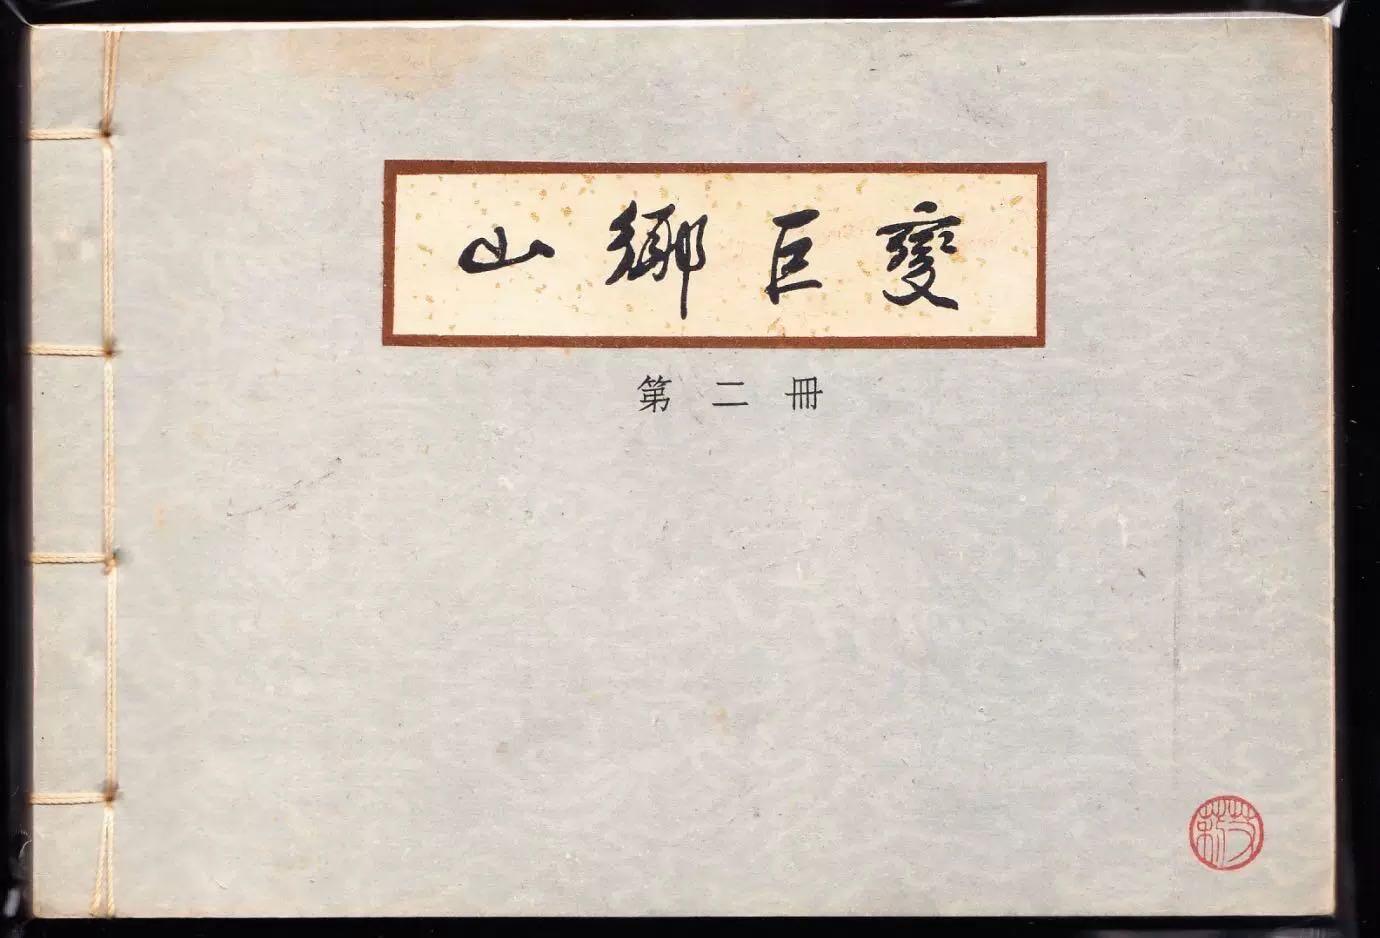 山鄉巨變
第二冊